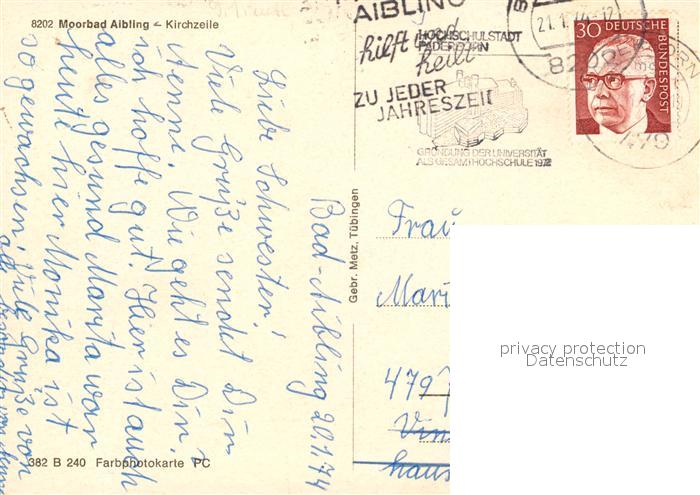 8202 Moorbad Aibling – Kirchzeile
AIBLING
hilft und
heilt
ZU JEDER
JAHRESZEIT
HOCHSCHULSTADT
PADERBORN
GRÜNDUNG DER UNIVERSITÄT
ALS GESAMTHOCHSCHULE 1972
21.1.74-12
8202
479
30 DEUTSCHE
BUNDESPOST
Bad-Aibling 20.1.74
Liebe Schwester!
Viele Grüße sendet Dir
Aenne. Wie geht es Dir,
ich hoffe gut. Hier ist auch
alles gesund Marita war
heute hier Monika ist
so gewachsen. Viele Grüße von
Gebr. Metz, Tübingen
Frau
Mari
479
haus
privacy protection
Datenschutz
382 B 240 Farbphotokarte PC